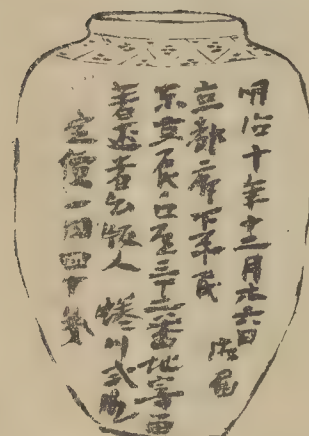 明治十年十二月廿六日
御届
京都府下平民
東京辰口道三丁六番地寄留
著述者 版人 蜷川式胤
定價一圓四十錢